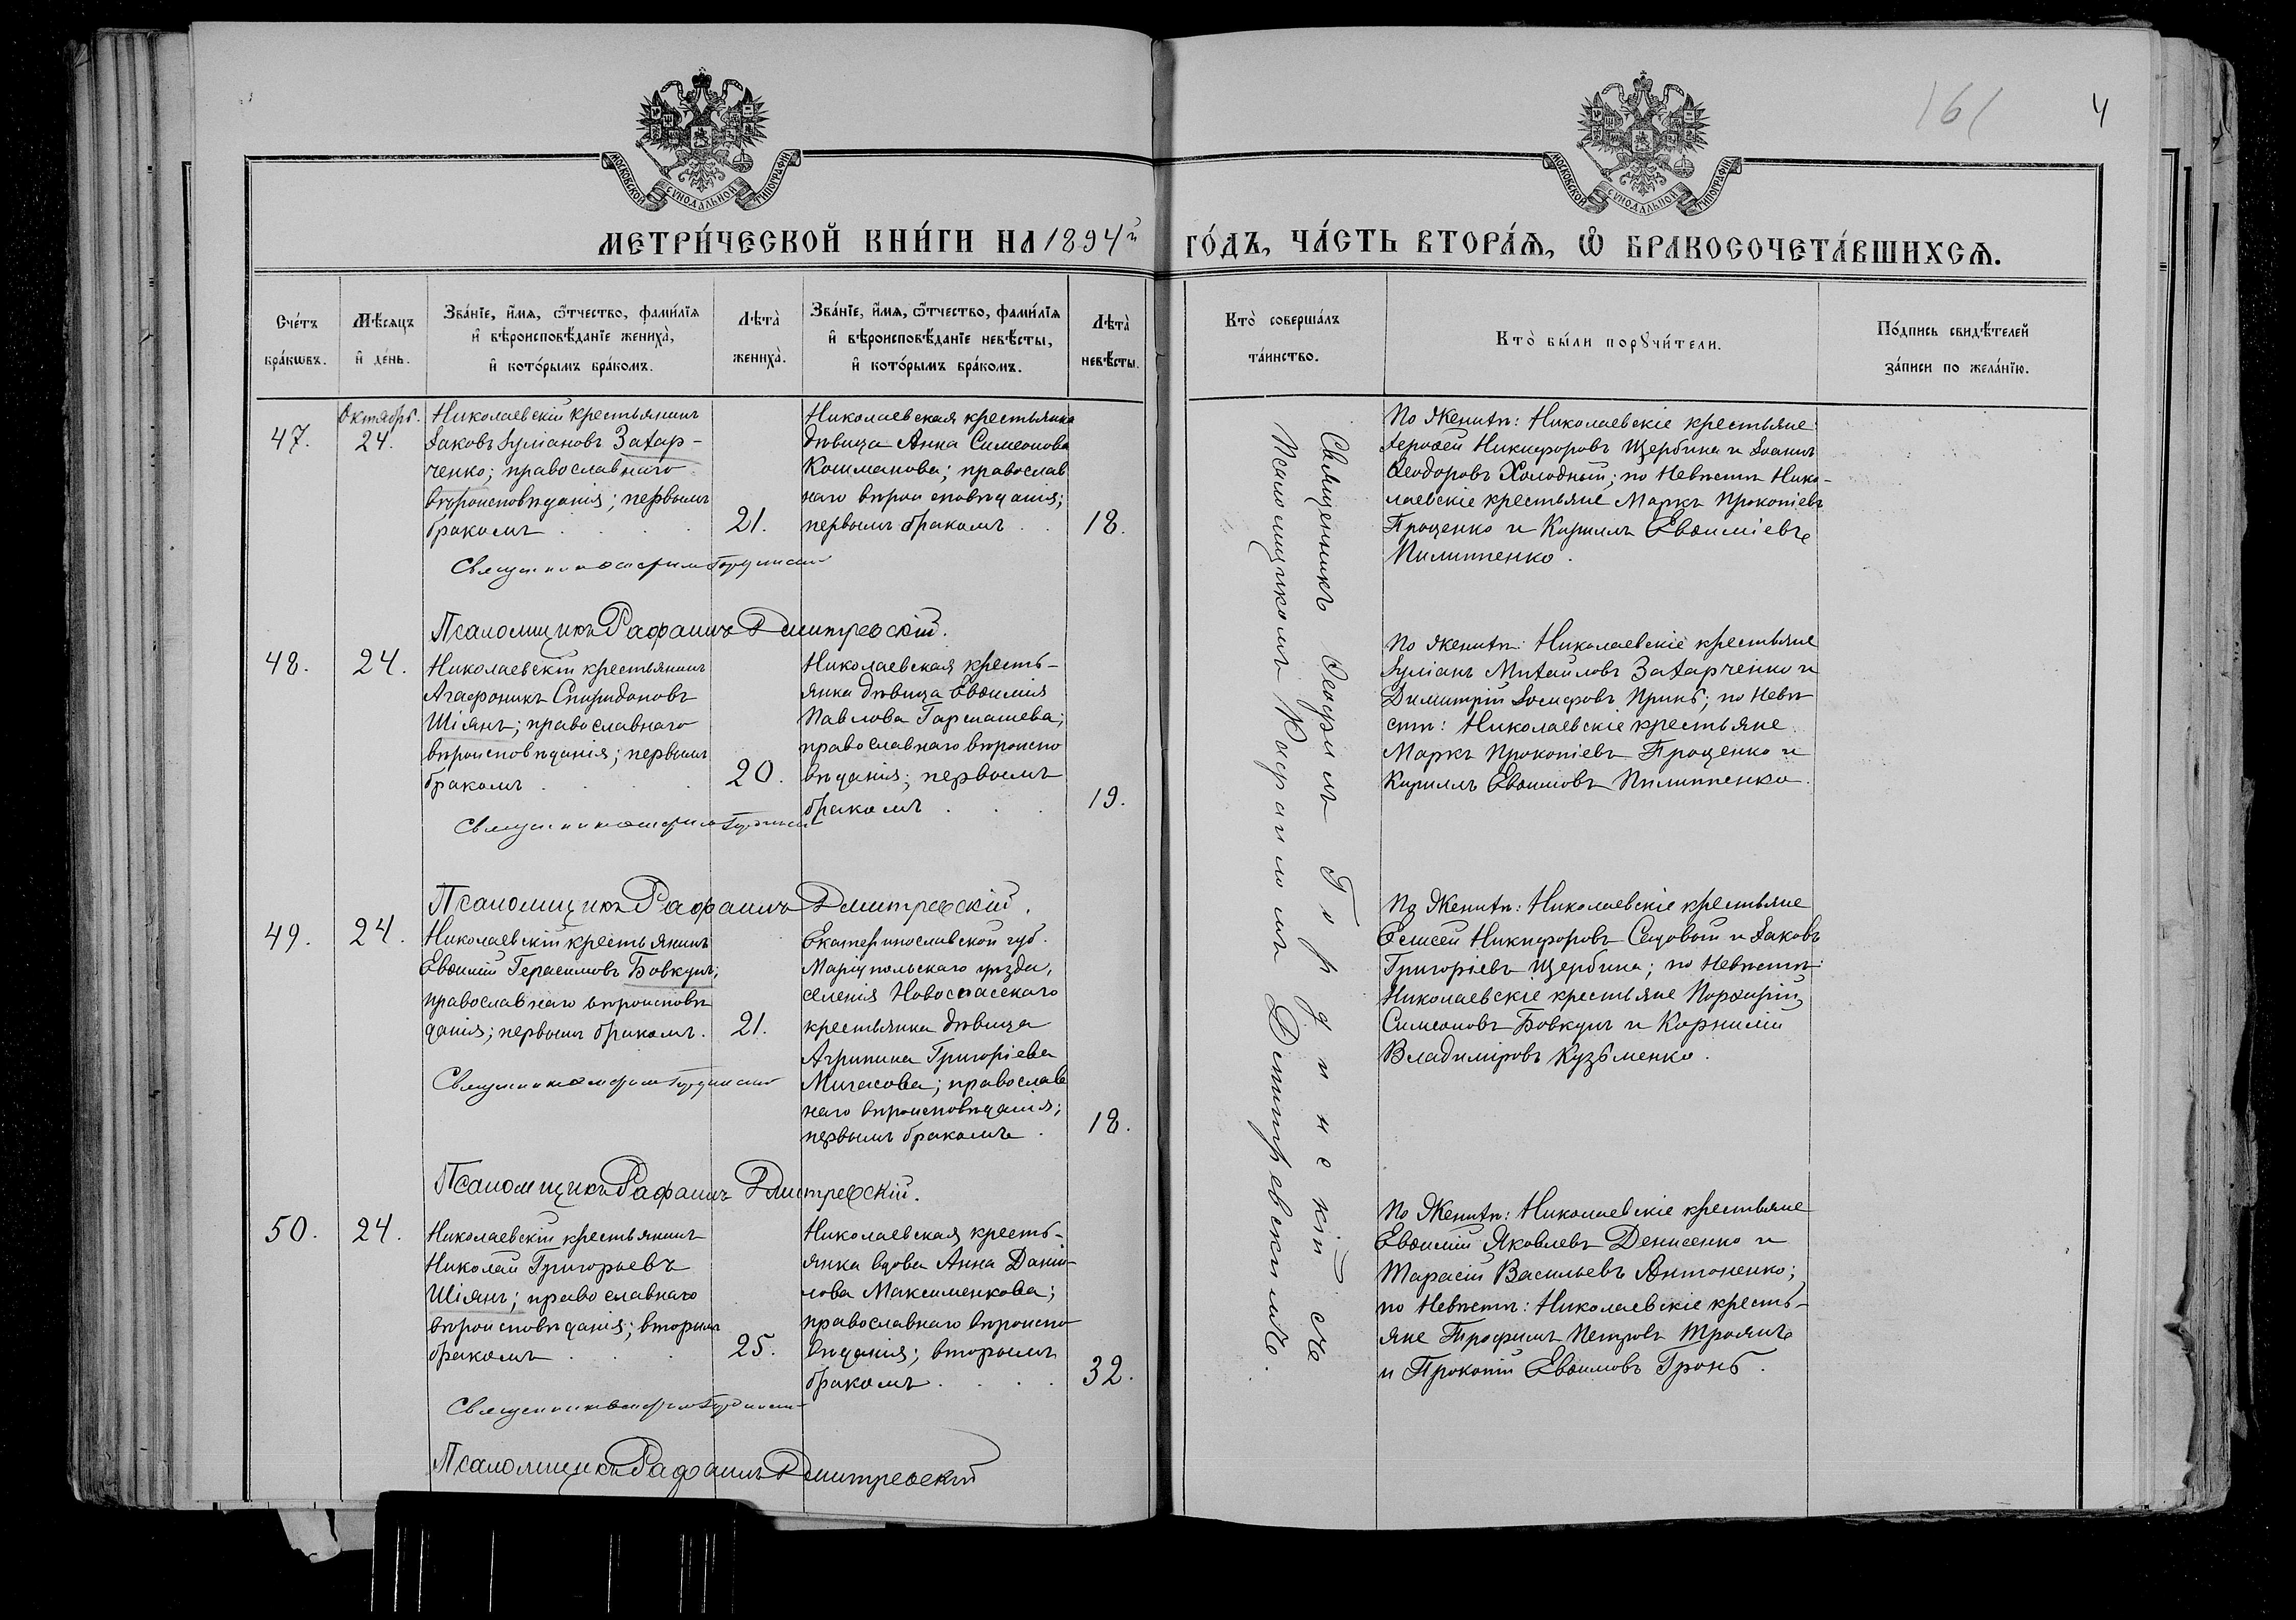 161
4
МОСКОВСКОЙ СѴНОДАЛЬНОЙ ТИПОГРАФІИ
МОСКОВСКОЙ СѴНОДАЛЬНОЙ ТИПОГРАФІИ
МЕТРИ́ЧЕСКОЙ КНИ́ГИ НА 1894й ГО́ДЪ, ЧА́СТЬ ВТОРА́Ѧ, Ѽ БРАКОСОЧЕТА́ВШИХСѦ.
Сче́тъ
бра́кѡвъ.
Мѣ́сяцъ
и҆ де́нь.
Зва́нїе, и҆́мѧ, ѻ҆́тчество, фами́лїѧ
и҆ вѣроисповѣ́данїе жениха̀,
и҆ кото́рымъ бра́комъ.
Лѣта̀
жениха̀.
Зва́нїе, и҆́мѧ, ѻ҆́тчество, фами́лїѧ
и҆ вѣроисповѣ́данїе невѣ́сты,
и҆ кото́рымъ бра́комъ.
Лѣта̀
невѣ́сты.
Кто̀ соверша́лъ
та́инство.
Кто̀ бы́ли порꙋчи́тели.
По́дпись свидѣ́телей
за́писи по жела́нїю.
47.
Октябрь.
24.
Николаевскій крестьянинъ
Іаковъ Іуліановъ Захар-
ченко; православнаго
вѣроисповѣданія; первымъ
бракомъ
21.
Николаевская крестьянка
дѣвица Анна Симеонова
Кошманова; православ
наго вѣроисповѣданія;
первымъ бракомъ
18.
Псаломщикъ Рафаилъ Дмитревскій.
По Женихѣ: Николаевскіе крестьяне
Іерофей Никифоровъ Щербина и Іоаннъ
Ѳеодоровъ Холодный; по Невѣстѣ Нико-
лаевскіе крестьяне Маркъ Прокопіевъ
Проценко и Кириллъ Евѳиміевъ
Пилипенко.
48.
24.
Николаевскій крестьянинъ
Агафоникъ Спиридоновъ
Шіянъ; православнаго
вѣроисповѣданія; первымъ
бракомъ
20.
Николаевская кресть-
янка дѣвица Евѳимія
Павлова Гармашева;
православнаго вѣроиспо
вѣданія; первымъ
бракомъ
19.
Псаломщикъ Рафаилъ Дмитревскій.
По Женихѣ: Николаевскіе крестьяне
Іуліанъ Михайловъ Захарченко и
Димитрій Іосифовъ Принь; по Невѣ
стѣ: Николаевскіе крестьяне
Маркъ Прокопіевъ Проценко и
Кириллъ Евѳимовъ Пилипенко.
49.
24.
Николаевскій крестьянинъ
Евѳимій Герасимовъ Бовкунъ;
православнаго вѣроисповѣ
данія; первымъ бракомъ.
21.
Екатеринославской губ.
Маріупольскаго уѣзда,
селенія Новоспасскаго
крестьянка дѣвица
Агрипина Григоріева
Мигасова; православ
наго вѣроисповѣданія;
первымъ бракомъ
18.
Псаломщикъ Рафаилъ Дмитревскій.
По Женихѣ: Николаевскіе крестьяне
Елисей Никифоровъ Садовый и Іаковъ
Григоріевъ Щербина; по Невѣстѣ:
Николаевскіе крестьяне Порфирій
Симеоновъ Бовкунъ и Корнилій
Владиміровъ Кузьменко.
50.
24.
Николаевскій крестьянинъ
Николай Григорьевъ
Шіянъ; православнаго
вѣроисповѣданія; вторымъ
бракомъ
25.
Николаевская кресть-
янка вдова Анна Даніи-
лова Максименкова;
православнаго вѣроиспо
вѣданія; вторымъ
бракомъ
32.
Псаломщикъ Рафаилъ Дмитревскій
По Женихѣ: Николаевскіе крестьяне
Евѳимій Яковлевъ Денисенко и
Тарасій Васильевъ Антоненко;
по Невѣстѣ: Николаевскіе кресть-
яне Трофимъ Петровъ Троянъ
и Прокопій Евѳимовъ Гронь.
Священникъ Серафимъ Гординскій съ
Псаломщикомъ Рафаиломъ Дмитревскимъ.